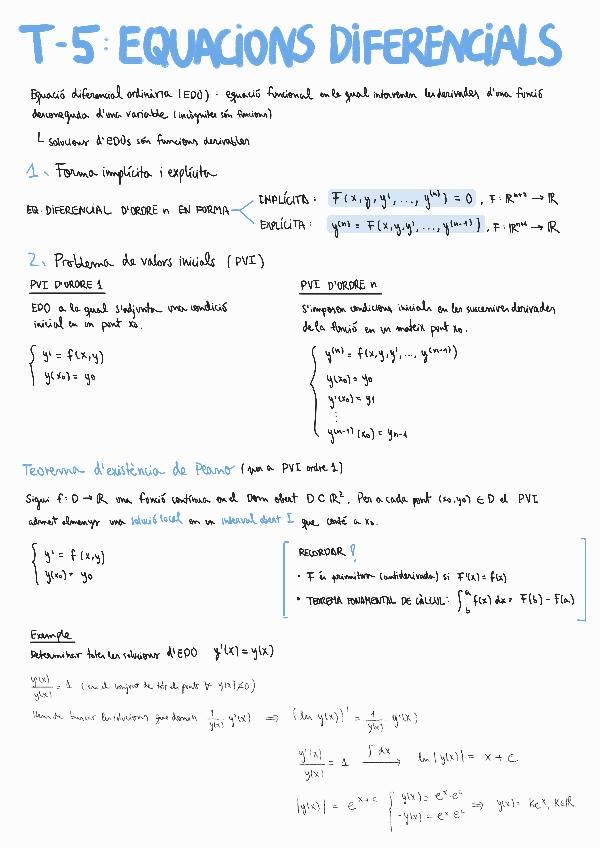 T-5: EQUACIONS DIFERENCIALS
Equació diferencial ordinària (EDO): equació funcional en la qual intervenen les derivades d'una funció
desconeguda d'una variable (incògnites són funcions)
└ Solucions d'EDOs són funcions derivables
1. Forma implícita i explícita
EQ. DIFERENCIAL D'ORDRE n EN FORMA
IMPLÍCITA: F(x, y, y', ..., y⁽ⁿ⁾) = 0, F: ℝⁿ⁺² → ℝ
EXPLÍCITA: y⁽ⁿ⁾ = F(x, y, y', ..., y⁽ⁿ⁻¹⁾), F: ℝⁿ⁺¹ → ℝ
2. Problema de valors inicials (PVI)
PVI D'ORDRE 1
EDO a la qual s'adjunta una condició
inicial en un punt x₀.
y' = f(x,y)
y(x₀) = y₀
PVI D'ORDRE n
S'imposen condicions inicials en les successives derivades
de la funció en un mateix punt x₀.
y⁽ⁿ⁾ = f(x, y, y', ..., y⁽ⁿ⁻¹⁾)
y(x₀) = y₀
y'(x₀) = y₁
⋮
y⁽ⁿ⁻¹⁾(x₀) = yₙ₋₁
Teorema d'existència de Peano (per a PVI ordre 1)
Sigui f: D → ℝ una funció contínua en el Dom obert D ⊂ ℝ². Per a cada punt (x₀,y₀) ∈ D el PVI
admet almenys una solució local en un interval obert I que conté a x₀.
y' = f(x,y)
y(x₀) = y₀
RECORDAR!
• F és primitiva (antiderivada) si F'(x) = f(x)
• TEOREMA FONAMENTAL DE CÀLCUL: ∫ₐᵇ f(x) dx = F(b) - F(a)
Exemple
Determinar totes les solucions d'EDO y'(x) = y(x)
y'(x)/y(x) = 1 (en el conjunt de tots els punts y(x) ≠ 0)
Hem de buscar les solucions que 1/y(x) · y'(x) ⇒ (ln y(x))' = 1/y(x) y'(x)
y'(x)/y(x) = 1 ∫dx → ln|y(x)| = x + c
|y(x)| = eˣ⁺ᶜ { y(x) = eˣ·eᶜ
-y(x) = eˣ eᶜ ⇒ y(x) = Keˣ, K∈ℝ